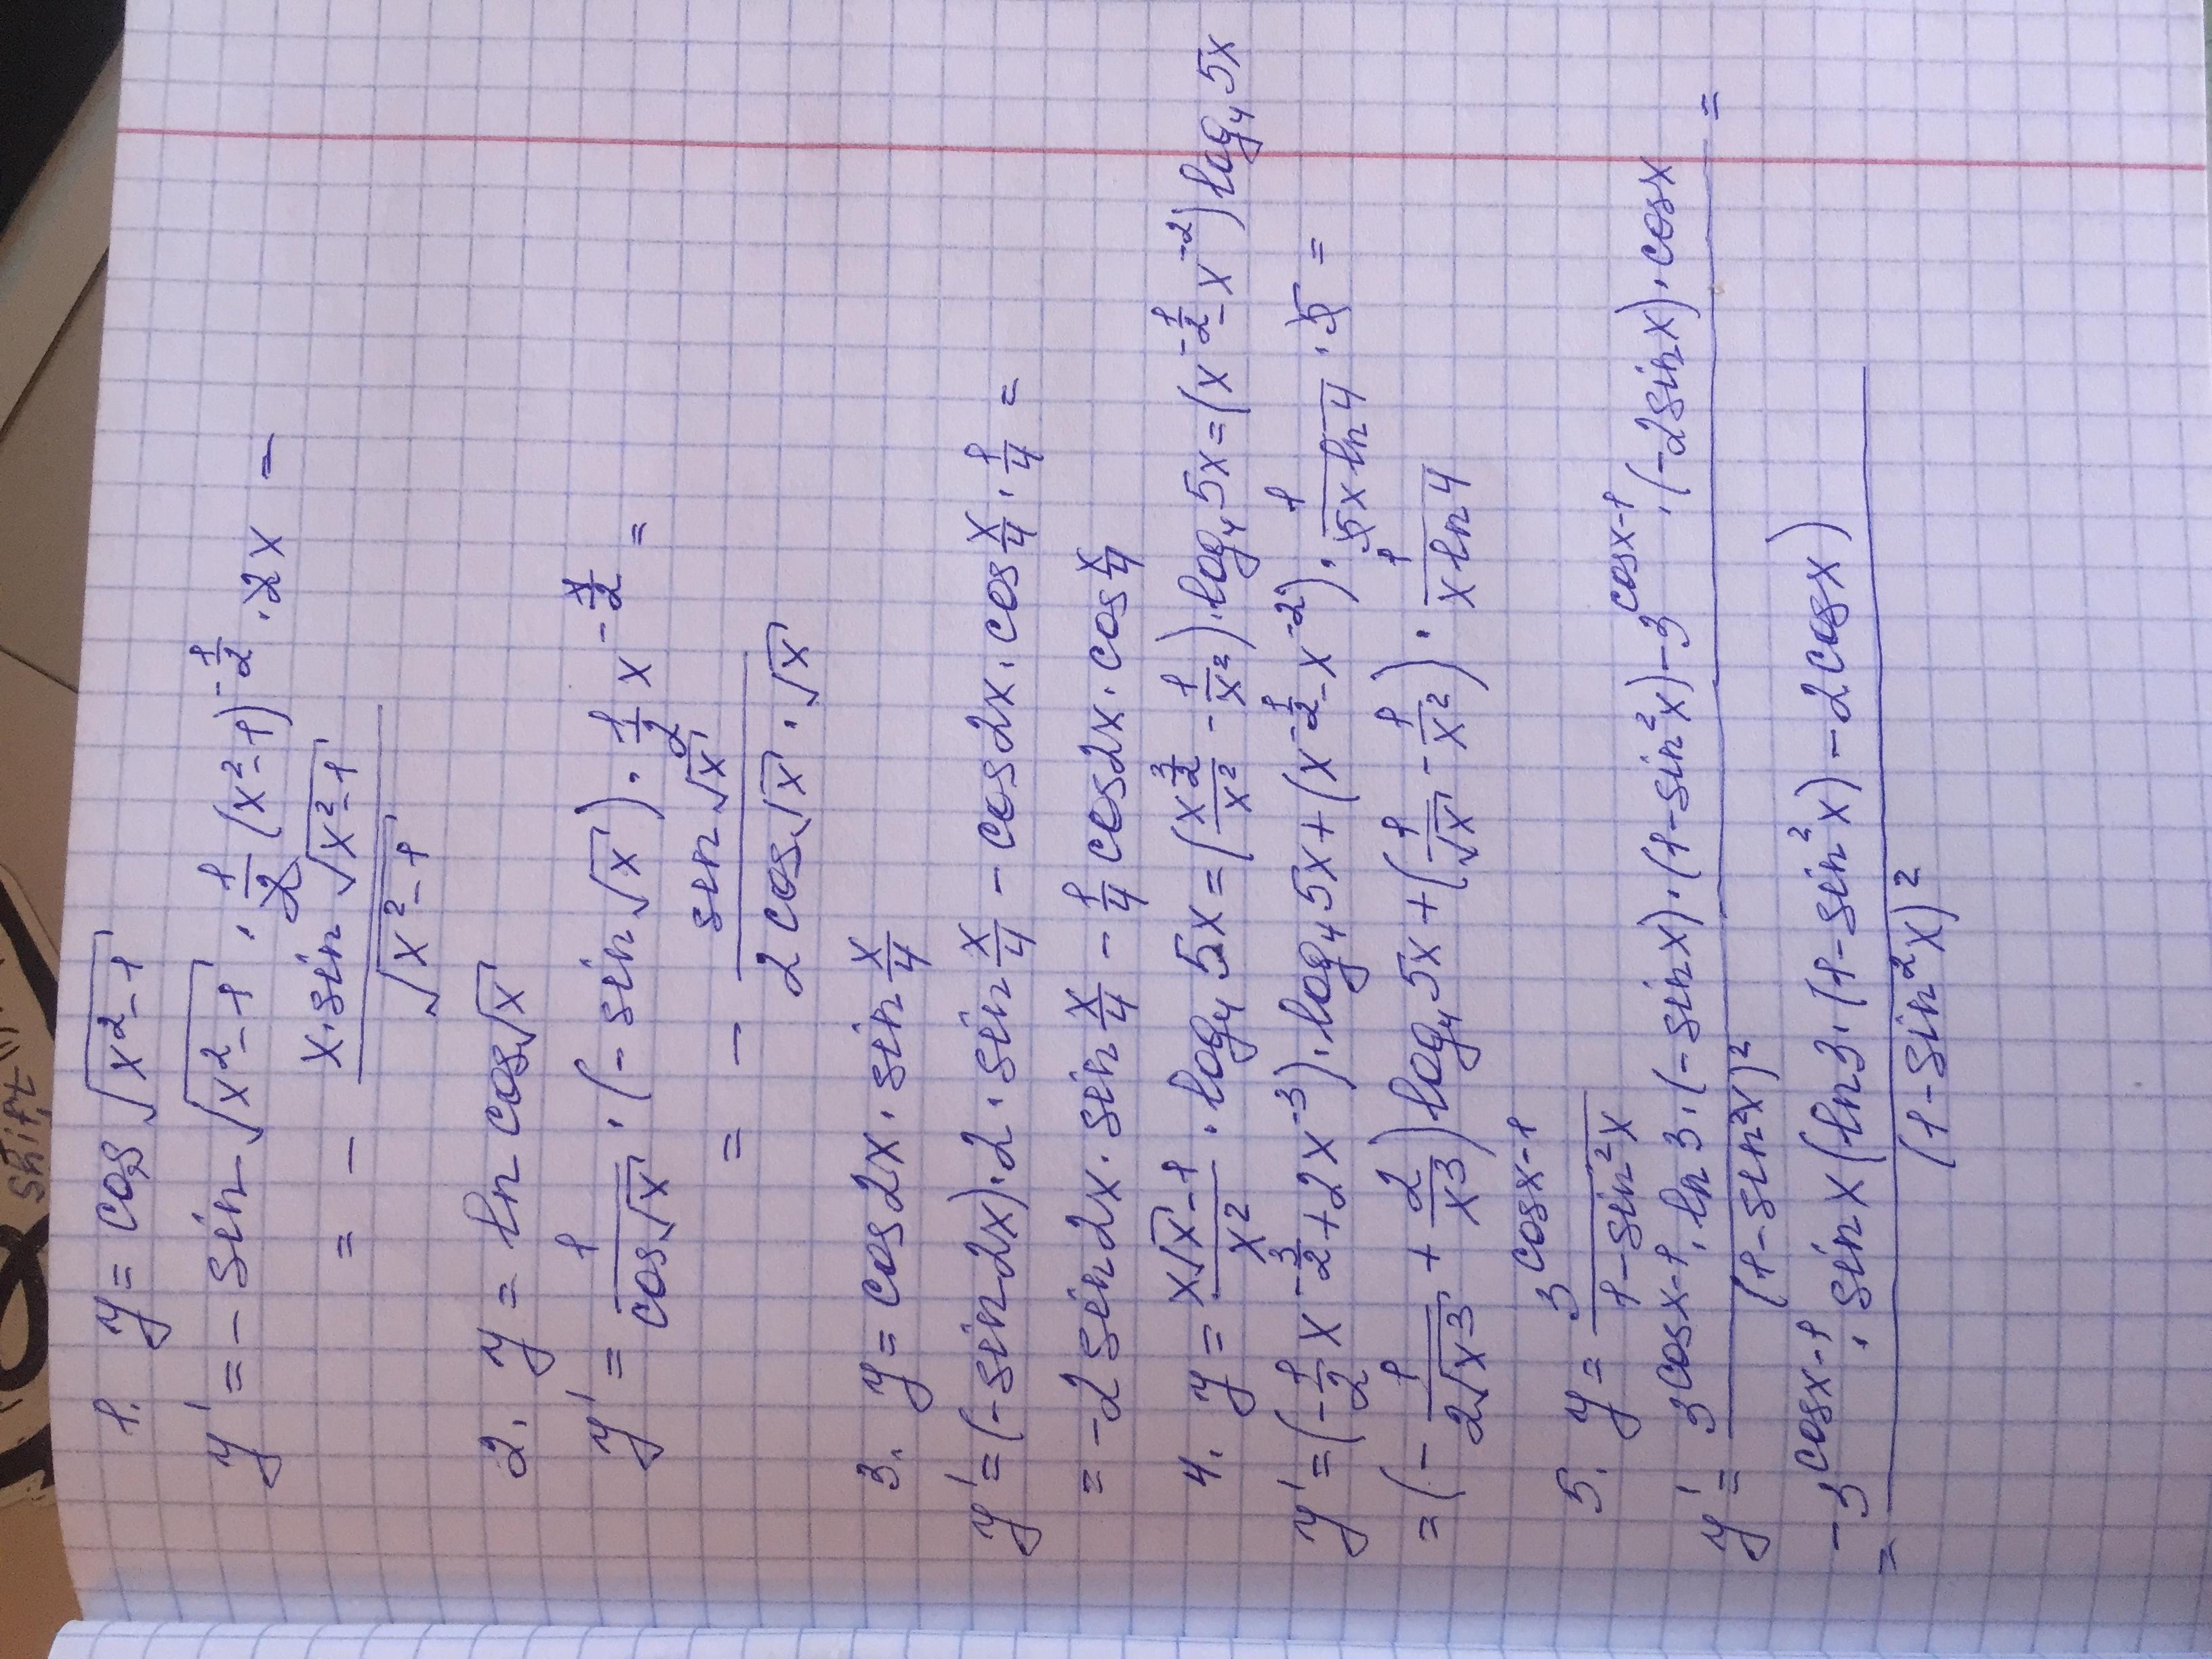 Shift
1. y = cos √(x²-1)
y' = - sin √(x²-1) · 1/2 (x²-1)^(-1/2) · 2x =
= - (x · sin √(x²-1))/√(x²-1)
2. y = ln cos √x
y' = 1/(cos √x) · (- sin √x) · 1/2 x^(-1/2) =
= - (sin √x)/(2 cos √x · √x)
3. y = cos 2x · sin x/4
y' = (- sin 2x) · 2 · sin x/4 - cos 2x · cos x/4 · 1/4 =
= -2 sin 2x · sin x/4 - 1/4 cos 2x · cos x/4
4. y = (x√x - 1)/x² · log₄ 5x = (x^(3/2)/x² - 1/x²) · log₄ 5x = (x^(-1/2) - x^(-2)) log₄ 5x
y' = (- 1/2 x^(-3/2) + 2x^(-3)) · log₄ 5x + (x^(-1/2) - x^(-2)) · 1/(5x ln 4) · 5 =
= (- 1/(2√x3) + 2/x3) log₄ 5x + (1/√x - 1/x²) · 1/(x ln 4)
5. y = 3^(cos x-1)/(1 - sin² x)
y' = (3^(cos x-1) · ln 3 · (- sin x) · (1 - sin² x) - 3^(cos x-1) · (-2 sin x) · cos x)/(1 - sin² x)² =
= (-3^(cos x-1) · sin x (ln 3 · (1 - sin² x) - 2 cos x))/(1 - sin² x)²